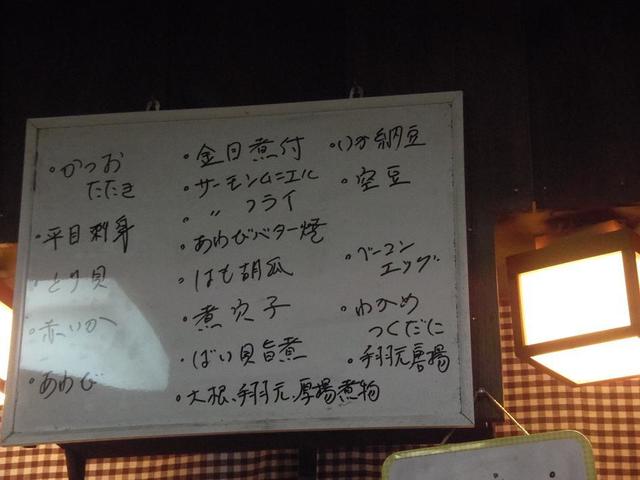 ・かつお
たたき
・平目刺身
・とり貝
・赤いか
・あわび
・金目煮付
・サーモンムニエル
・〃 フライ
・あわびバター焼
・はも胡瓜
・煮穴子
・ばい貝旨煮
・大根、手羽元、厚揚煮物
・いか納豆
・空豆
・ベーコン
エッグ
・わかめ
つくだに
・手羽元唐揚